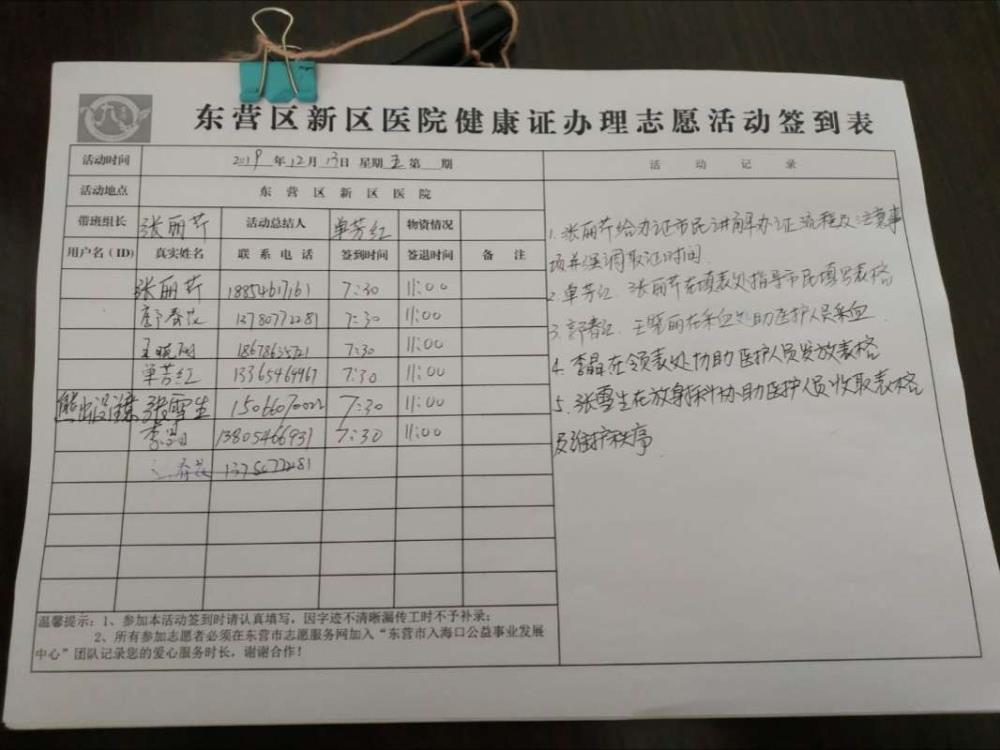 东营区新区医院健康证办理志愿活动签到表
活动时间 2019 年 12 月 13 日 星期 五 第 期
活动地点 东营区新区医院
带班组长 张丽芹 活动总结人 单芳红 物资情况
用户名（ID） 真实姓名 联系电话 签到时间 签退时间 备注
张丽芹 18854617161 7:30 11:00
郭春花 13780772281 7:30 11:00
7:30 11:00
单芳红 7:30 11:00
熊出没 张雪生 7:30 11:00
李晶 13805466937 7:30 11:00
春花
温馨提示：1、参加本活动签到时请认真填写，因字迹不清晰漏传工时不予补录；
2、所有参加志愿者必须在东营市志愿服务网加入“东营市入海口公益事业发展
中心”团队记录您的爱心服务时长，谢谢合作！
活动记录
1. 张丽芹给办证市民讲解办证流程及注意事
项并强调取证时间.
2. 单芳红、张丽芹在填表处指导市民填写表格
3. 郭春红、王 丽在采血处助医护人员采血
4. 李晶在领表处协助医护人员发放表格
5. 张雪生在放射科协助医护人员收取表格
及维护秩序